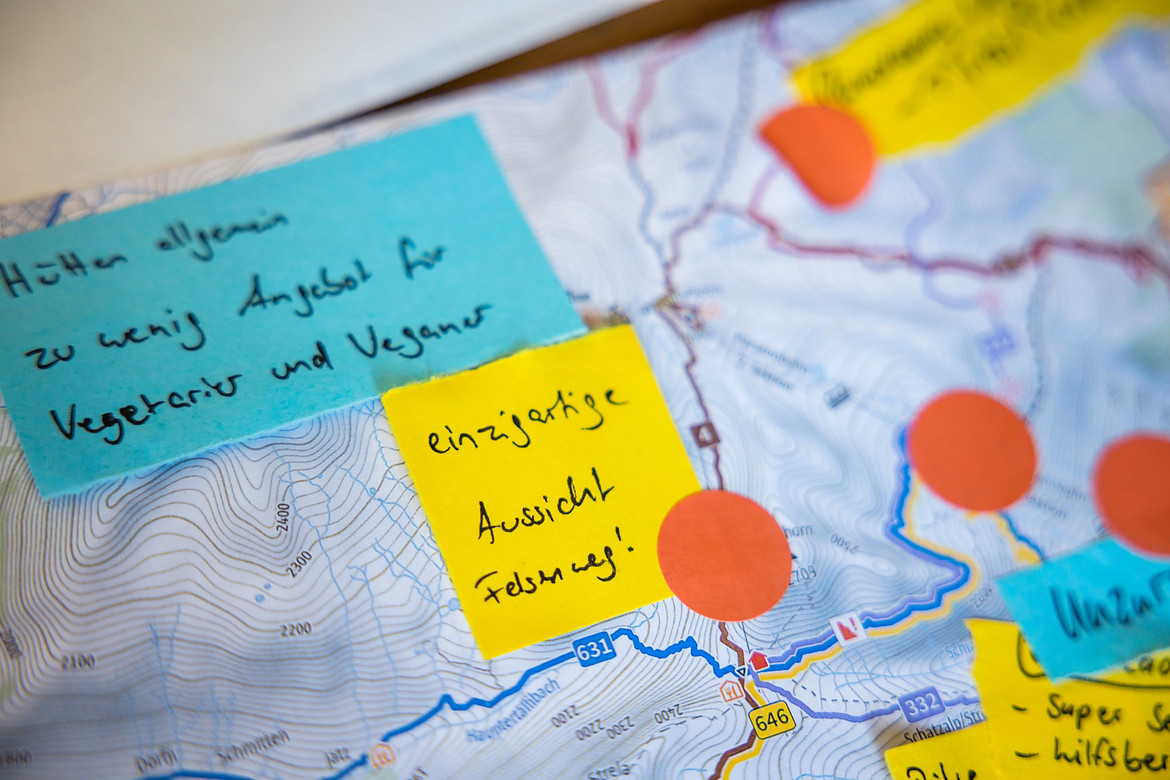 Hütten allgemein
zu wenig Angebot für
Vegetarier und Veganer
einzigartige
Aussicht
Felsenweg!
4
2400
2300
2200
2100
631
Hauptertällibach
2100
2200
2300
2400
2500
646
332
Schatzalp/Stre
Strela
Dörfji
Schmitten
Jatz
- Super S
- hilfsber